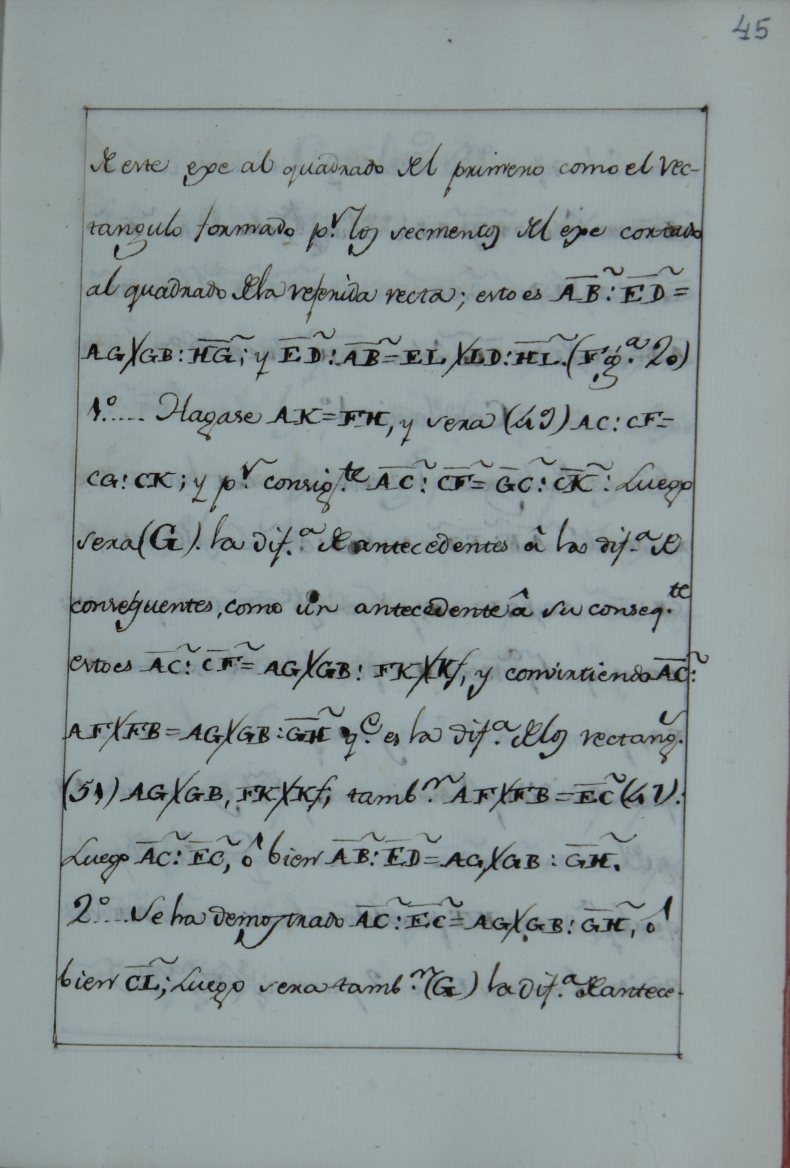 45
de este exe al quadrado del primero como el rec-
tangulo formado p.r los secmentos del exe cortado
al quadrado de la referida recta; esto es A̅B̅~:E̅D̅~=
AG╳GB:H̅G̅~; y E̅D̅~:A̅B̅~=EL╳LD:H̅L̅~. (Fig.a 20)
1.o.... Hagase AK=FH, y sera (49) AC:CF=
CG:CK; y p.r consig.te A̅C̅~:C̅F̅~=G̅C̅~:C̅K̅~: Luego
sera (G). la dif.a de antecedentes â las dif.a de
conseqüentes, como un antecedente â su conseq.te
esto es A̅C̅~:C̅F̅~=AG╳GB:FK╳Kf, y convirtiendo A̅C̅~:
AF╳FB=AG╳GB:G̅H̅~ q.e es la dif.a de los rectang.s
(51) AG╳GB, FK╳Kf; tamb.n AF╳FB=E̅C̅~ (47):
Luego A̅C̅~:E̅C̅~, ô bien A̅B̅~:E̅D̅~=AG╳GB:G̅H̅~.
2.o.... Se ha demostrado A̅C̅~:E̅C̅~=AG╳GB:G̅H̅~, ô
bien C̅L̅~; Luego sera tamb.n (G) la dif.a de antece-